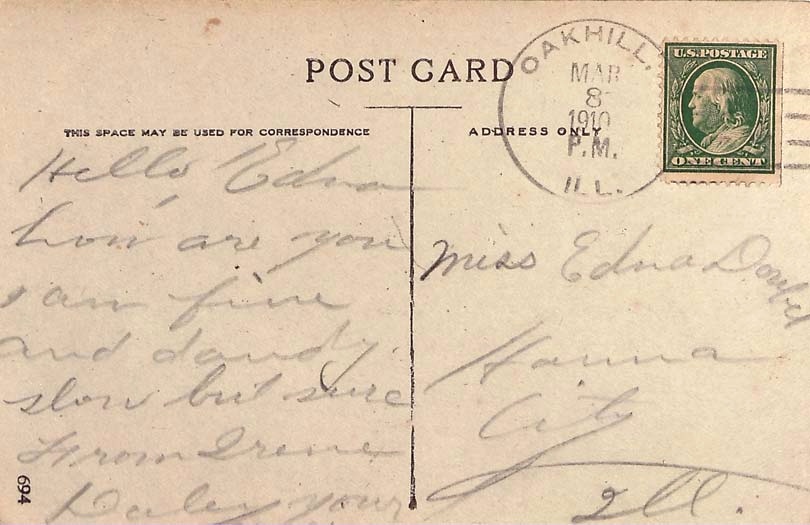 POST CARD
THIS SPACE MAY BE USED FOR CORRESPONDENCE
ADDRESS ONLY
OAKHILL.
MAR
8
1910
P.M.
ILL.
U.S. POSTAGE
ONE CENT
Hello, Edna
how are you
I am fine
and dandy.
slow but sure
From Irene
Daley your
Miss Edna
Hanna
City
Ill.
694